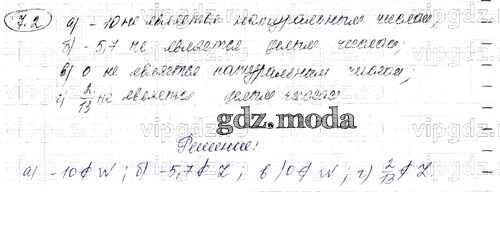 7.2 а) -10 не является натуральным числом;
б) -5,7 не является целым числом;
в) 0 не является натуральным числом;
г) 2/13 не является целым числом
gdz.moda
Решение:
а) -10 ∉ N; б) -5,7 ∉ Z; в) 0 ∉ N; г) 2/13 ∉ Z